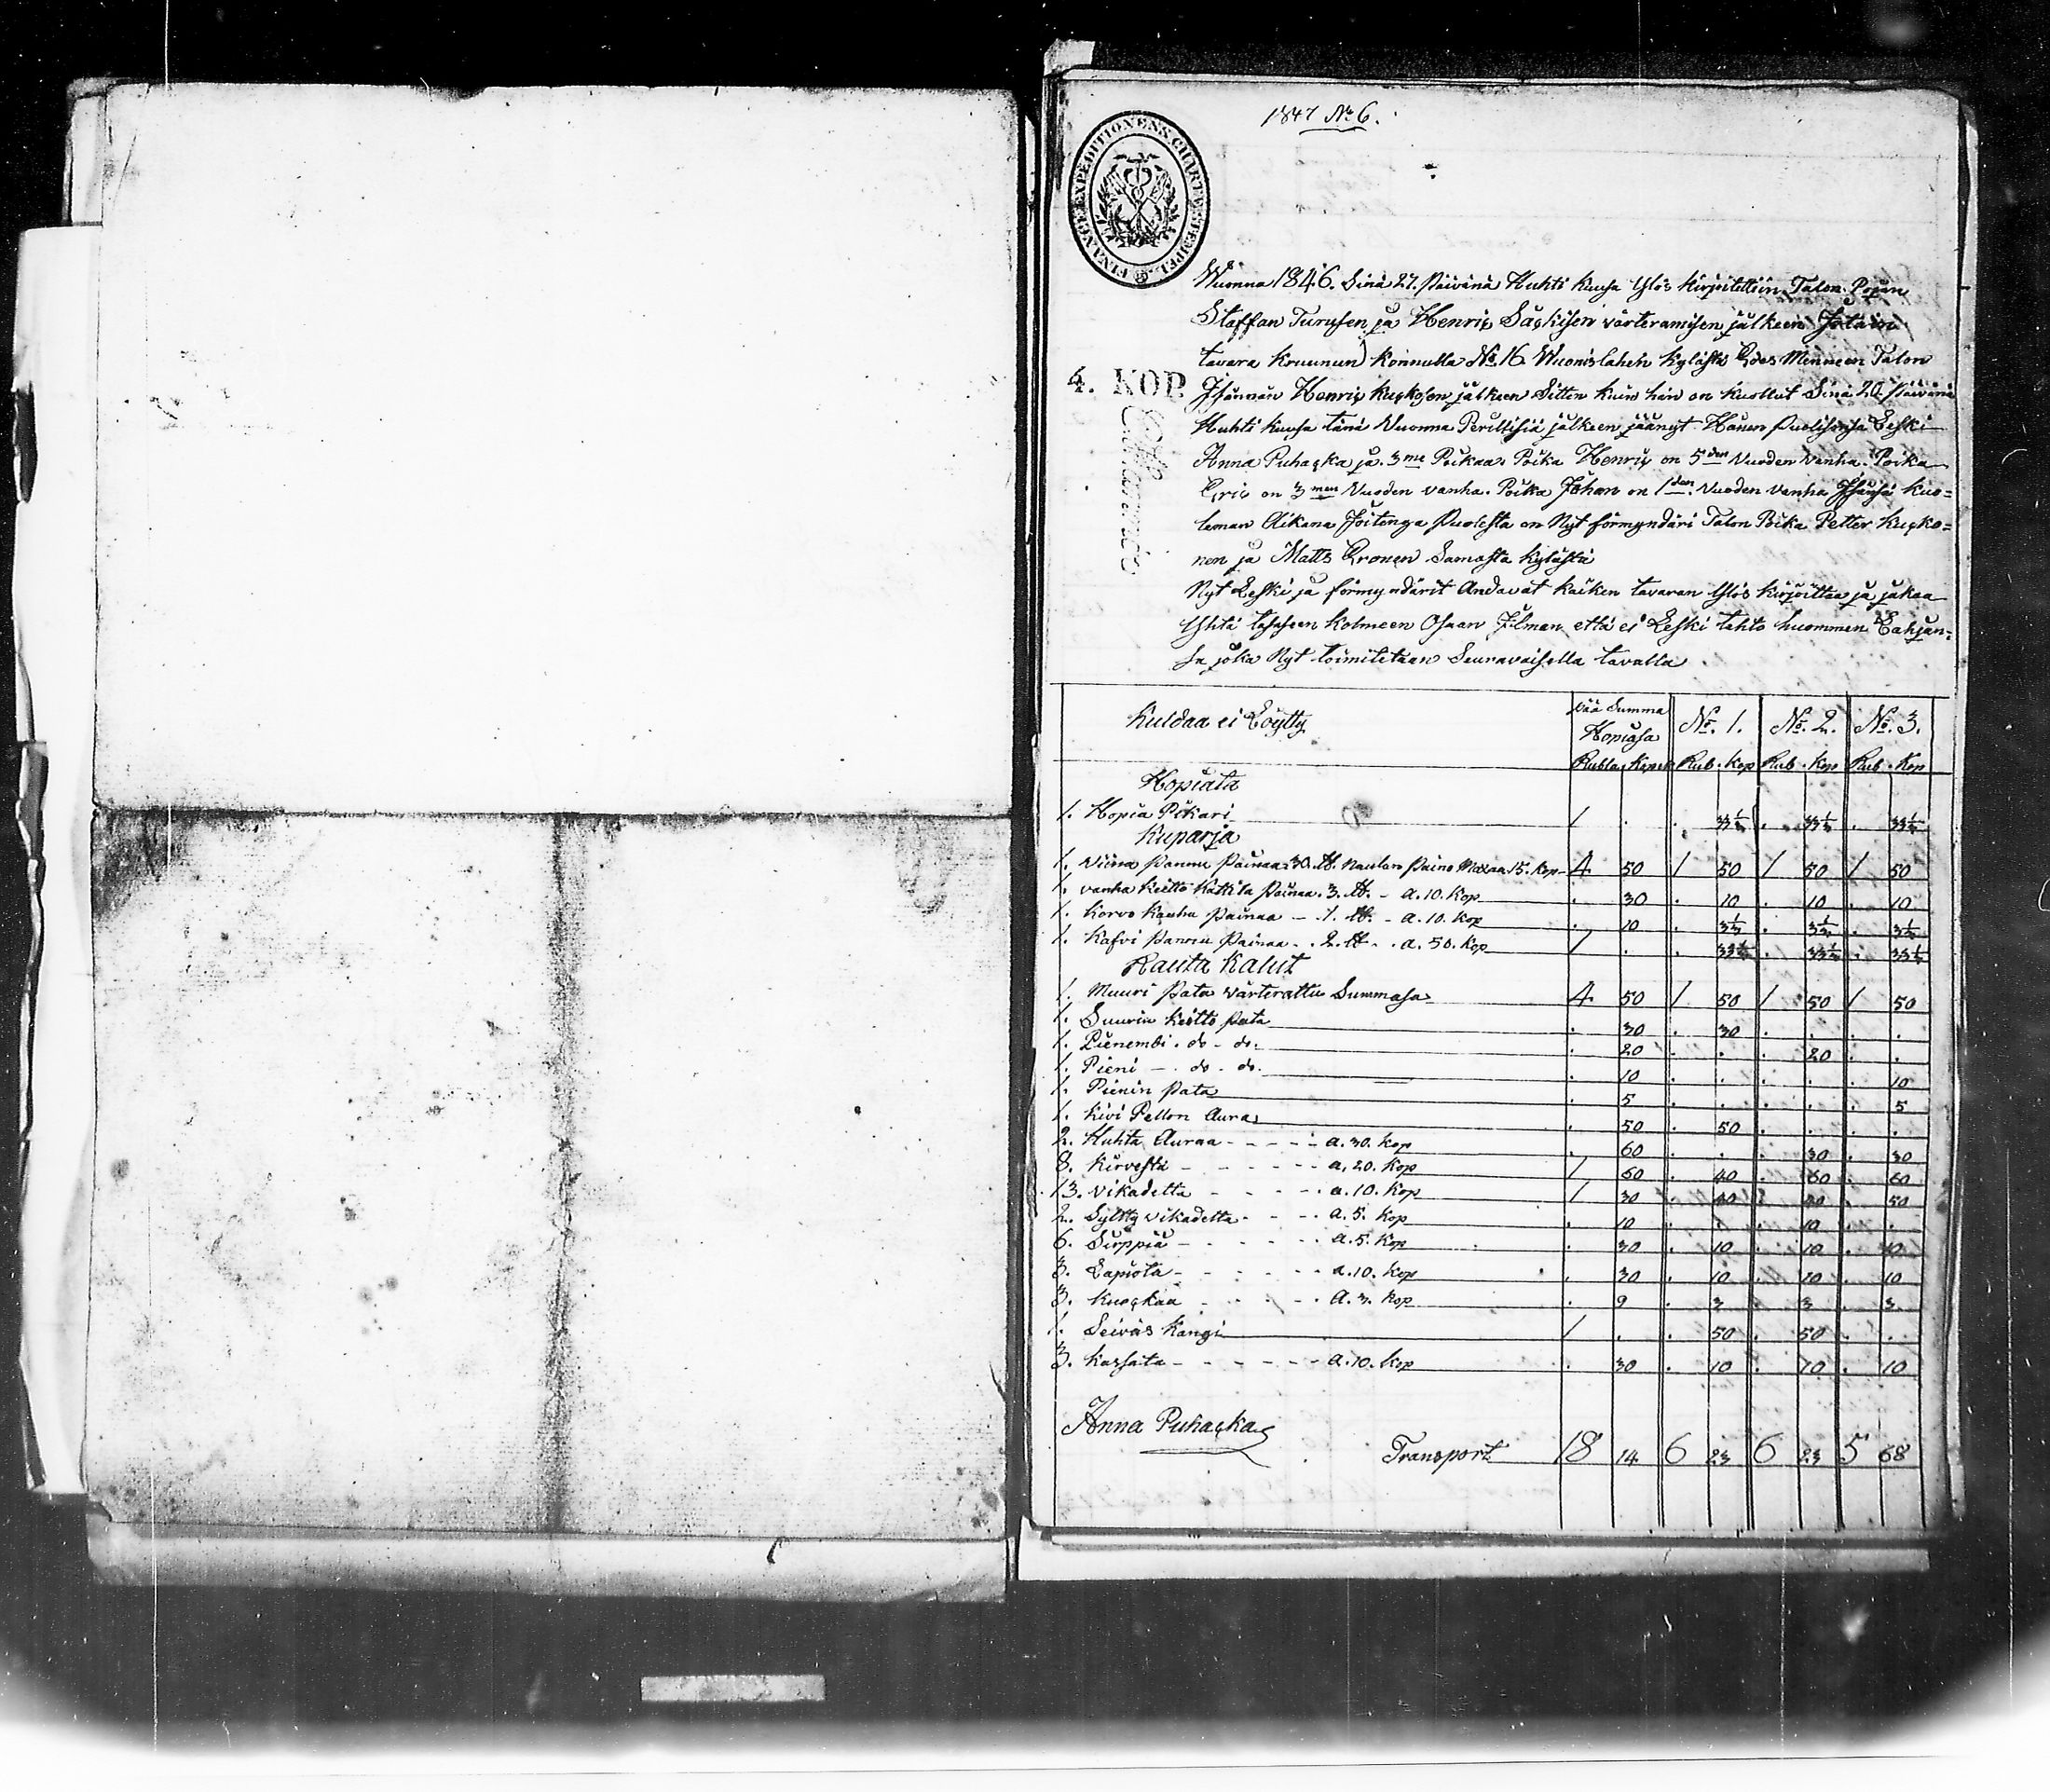 1847 No 6.
FINANCE EXPEDITIONENS CHARTÆ STEMPEL
4. KOP.
Wuonna 1846. Sinä 27. Päivänä Huhti kuusa Ylös kirjoitettiin Talon Pojan
Staffan Turusen ja Henriҫ Säҫkisen värteramisen jälkeen Jotain
tavara kruunun konnulla No 16 Wuonislahen kylästä Edes Menneen Talon
Isännän Henriҫ kuҫkosen jälkeen Sitten kuin hän on kuollut Sinä 20 Päivänä
Huhti kuusa tänä Wuonna Perillisiä jälkeen jäänyt Hänen Puolisonsa Leski
Anna Puhaҫka ja 3me Poikaa. Poika Henriҫ on 5den Vuoden vanha. Poika
Eric on 3men Vuoden vanha. Poika Johan on 1den Vuoden vanha Isänsä kuo=
leman Aikana Joitenga Puolesta on Nyt förmyndäri Talon Poika Petter kuҫko=
nen ja Matts Eronen Samasta kylästä
Nyt Leski ja förmyndärit Andavat kaiken tavaran Ylös kirjoittaa ja jakaa
Yhtä tasaseen kolmeen Osaan Ilman että ei Leski tahto huommen Lahjan=
sa joka Nyt toimitetaan Seuravaisella tavalla
kuldaa ei Löytty
Pää Summa Hopiasa No. 1. No. 2. No. 3.
Rubla kopek Rub. kop Rub. kop Rub. kop
Hopiata
1. Hopia Pikari 1 . . 33 1/3 . 33 1/3 . 33 1/3
kuparja
1. Viina Pannu Painaa 30 ℔. naulan Paino Maxaa 15. kop 4 50 1 50 1 50 1 50
1. vanha keitto kattila Painaa. 3. ℔. - a. 10. kop . 30 . 10 . 10 . 10
1. korvo kauha Painaa - . 1. ℔. - a. 10. kop . 10 . 3 1/3 . 3 1/3 . 3 1/3
1. kafvi Pannu Painaa - . 2. ℔ - . a. 50. kop 1 . . 33 1/3 . 33 1/3 . 33 1/3
Rauta kalut
1. Muuri Pata värterattu Summasa 4 50 1 50 1 50 1 50
1. Suurin keitto Pata . 30 . 30 . . . .
1. Pienembi. do - do. . 20 . . . 20 . .
1. Pieni - . do. do. . 10 . . . . . 10
1. Pienin Pata . 5 . . . . . 5
1. kivi Pellon Aura . 50 . 50 . . . .
2. Huhta Auraa - - - - - a. 30. kop . 60 . . . 30 . 30
8. kirvestä - - - - - a. 20. kop 1 60 . 40 . 60 . 60
13. vikadetta - - - - a. 10. kop 1 30 . 40 . 40 . 50
2. Syltty vikadetta - - - a. 5. kop . 10 . . . 10 . .
6. Sirppiä - - - - - a. 5. kop . 30 . 10 . 10 . 10
3. Lapiota - - - - - - a. 10. kop . 30 . 10 . 10 . 10
3. kuoҫkaa - - - - - a. 3. kop . 9 . 3 . 3 . 3
1. Seiväs kangi 1 . . 50 . 50 . .
3. kassata - - - - - - a. 10. kop . 30 . 10 . 10 . 10
Anna Puhaҫka
Transport 18 14 6 23 6 23 5 68